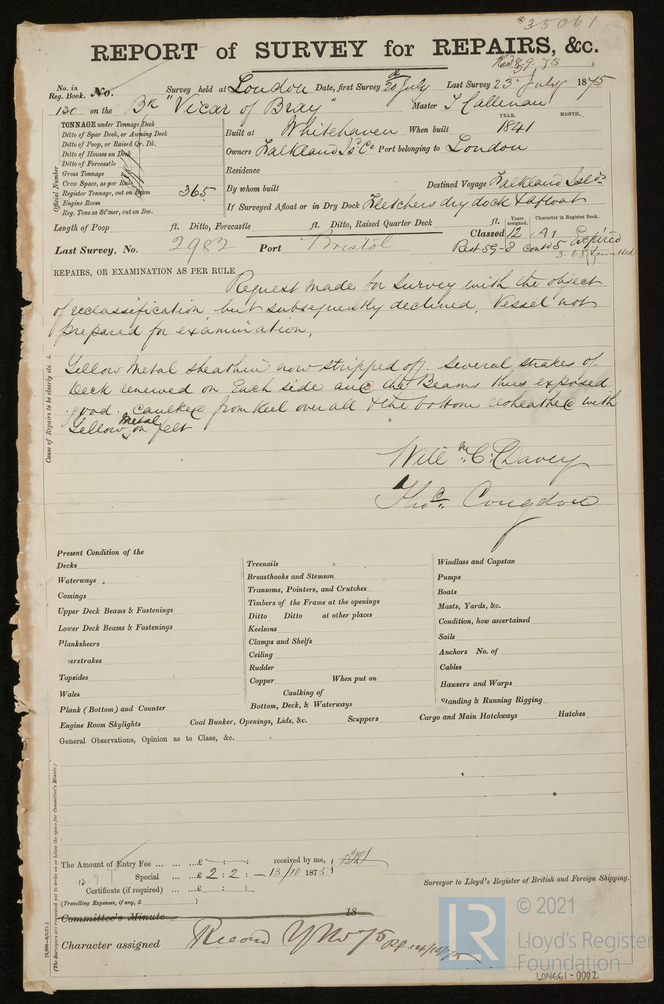 *35061
REPORT of SURVEY for REPAIRS, &c.
No. in Reg. Book. No. Survey held at London Date, first Survey 20 July Last Survey 23 July 1875
130 on the Bk "Vicar of Bray" Master J Callenan
TONNAGE under Tonnage Deck
Ditto of Spar Deck, or Awning Deck
Ditto of Poop, or Raised Qr. Dk.
Ditto of Houses on Deck
Ditto of Forecastle
Gross Tonnage
Crew Space, as per Rule
Register Tonnage, cut on Beam 365
Engine Room
Reg. Tons as St'mer, cut on Bm.
Official Number
YEAR. MONTH.
Built at Whitehaven When built 1841
Owners Falkland Is Co Port belonging to London
Residence
By whom built Destined Voyage Falkland Islds
If Surveyed Afloat or in Dry Dock Fletchers dry dock & afloat
Length of Poop ft. Ditto, Forecastle ft. Ditto, Raised Quarter Deck ft.
Years assigned. Character in Register Book.
Classed 12 A1 Expired
Rest 59-8 Contd 5
Last Survey, No. 2982 Port Bristol
REPAIRS, OR EXAMINATION AS PER RULE
Request made for survey with the object
of reclassification but subsequently declined. Vessel not
prepared for examination.
Yellow Metal sheathing now stripped off. Several strakes of
Deck renewed on Each side and the Beams thus exposed
good. caulked from Keel over all & the bottom resheathed with
Yellow metal on felt
Willm C. Davey
Thos Congdon
Cause of Repairs to be clearly sta
Present Condition of the
Decks
Waterways
Comings
Upper Deck Beams & Fastenings
Lower Deck Beams & Fastenings
Planksheers
erstrakes
Topsides
Wales
Plank (Bottom) and Counter
Treenails
Breasthooks and Stemson
Transoms, Pointers, and Crutches
Timbers of the Frame at the openings
Ditto Ditto at other places
Keelsons
Clamps and Shelfs
Ceiling
Rudder
Copper When put on
Caulking of
Bottom, Deck, & Waterways
Windlass and Capstan
Pumps
Boats
Masts, Yards, &c.
Condition, how ascertained
Sails
Anchors No. of
Cables
Hawsers and Warps
Standing & Running Rigging
Engine Room Skylights Coal Bunker, Openings, Lids, &c. Scuppers Cargo and Main Hatchways Hatches
General Observations, Opinion as to Class, &c.
The Amount of Entry Fee ... ... ...£ : : received by me,
Special ... ...£ 2 : 2 : - 13/10 1875
Certificate (if required) ...£ : :
(Travelling Expenses, if any, £ )
Surveyor to Lloyd's Register of British and Foreign Shipping.
Committee's Minute 18
Character assigned Record
LR
© 2021
Lloyd's Register
Foundation
LONGG1-0002